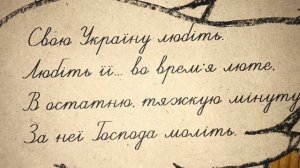 Свою Україну любіть.
Любіть її... во время люте,
В остатню, тяжкую мінуту
За неї Господа моліть.